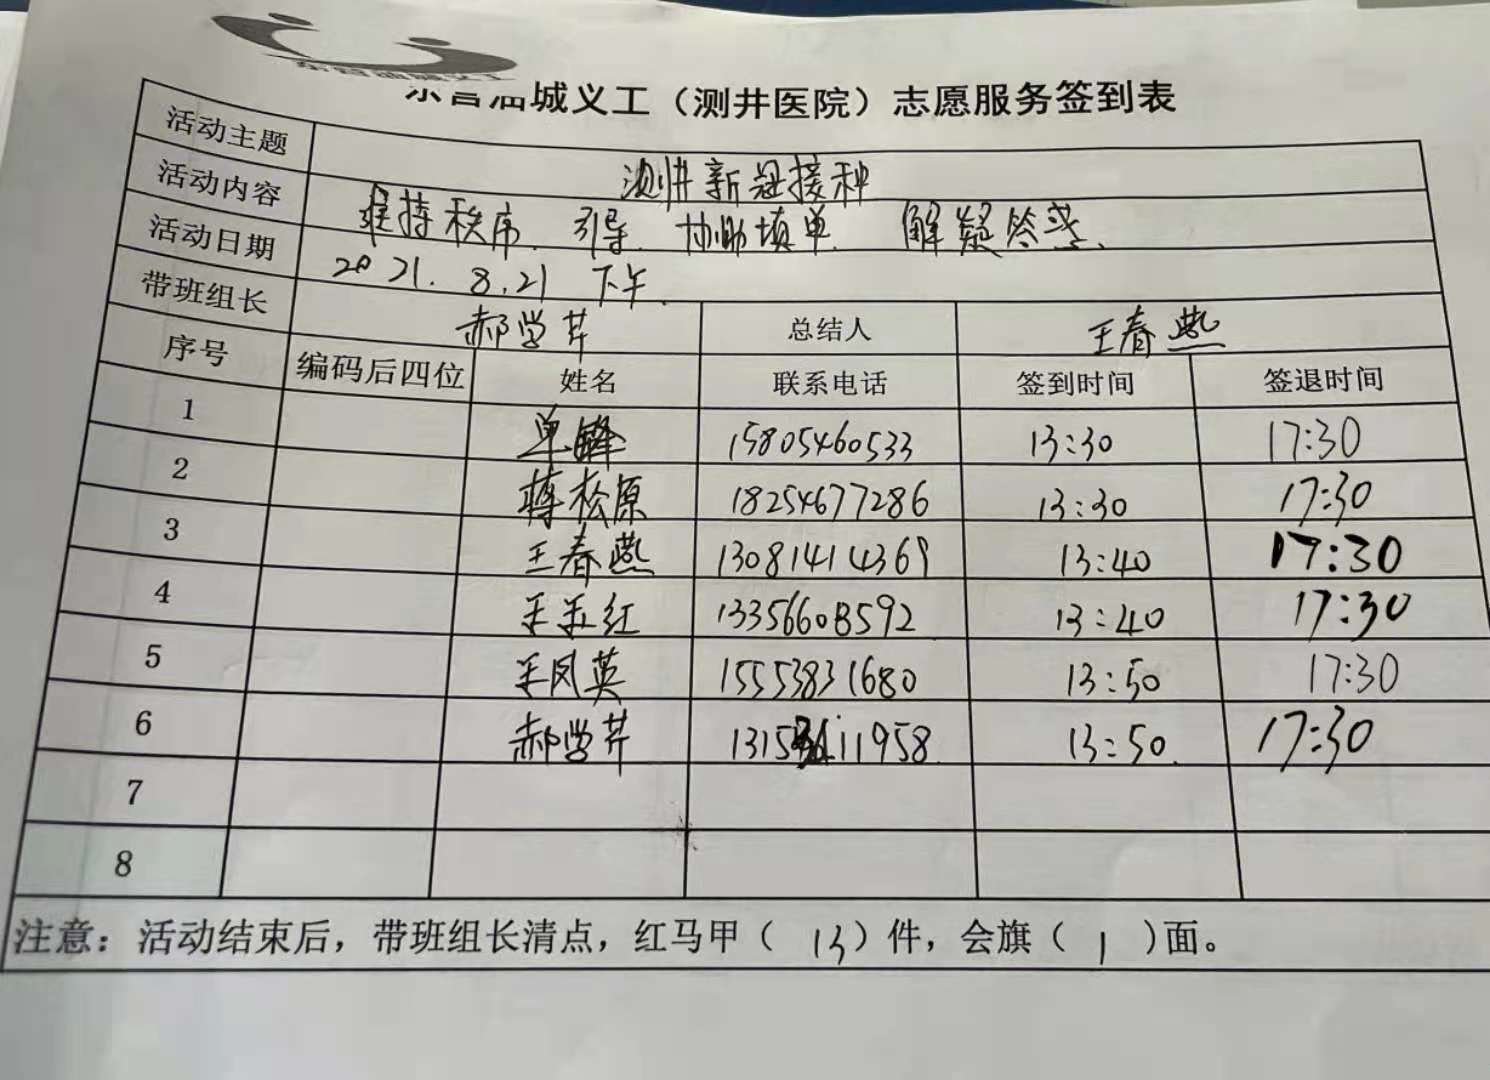 东营油城义工
东营油城义工（测井医院）志愿服务签到表
活动主题 测井新冠接种
活动内容 维持秩序、引导、协助填单、解疑答惑、
活动日期 2021.8.21 下午.
带班组长 郝学芹 总结人 王春燕
序号 编码后四位 姓名 联系电话 签到时间 签退时间
1 单锋 15805460533 13:30 17:30
2 蒋松原 18254677286 13:30 17:30
3 王春燕 13081414369 13:40 17:30
4 王玉红 13356608592 13:40 17:30
5 王凤英 15553831680 13:50 17:30
6 郝学芹 13:50. 17:30
7
8
注意：活动结束后，带班组长清点，红马甲（ 13 ）件，会旗（ 1 ）面。